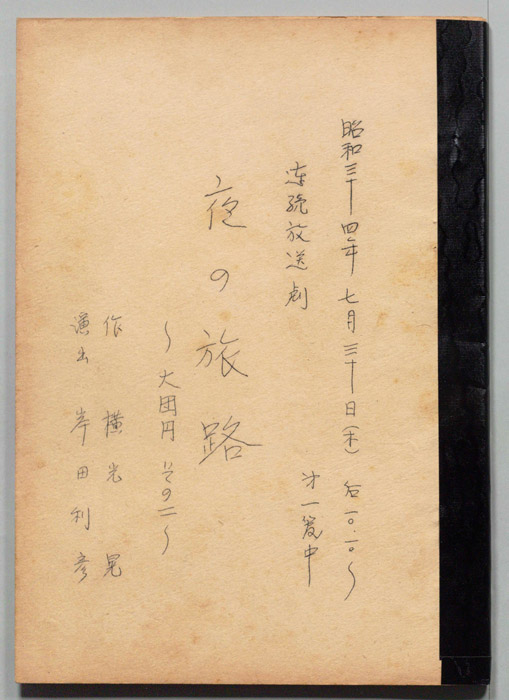 昭和三十四年七月三十日(木) 后一〇.一〇〜
オ一籠中
連続放送劇
夜の旅路
〜大団円 その二〜
作 横光晃
演出 岸田利彦